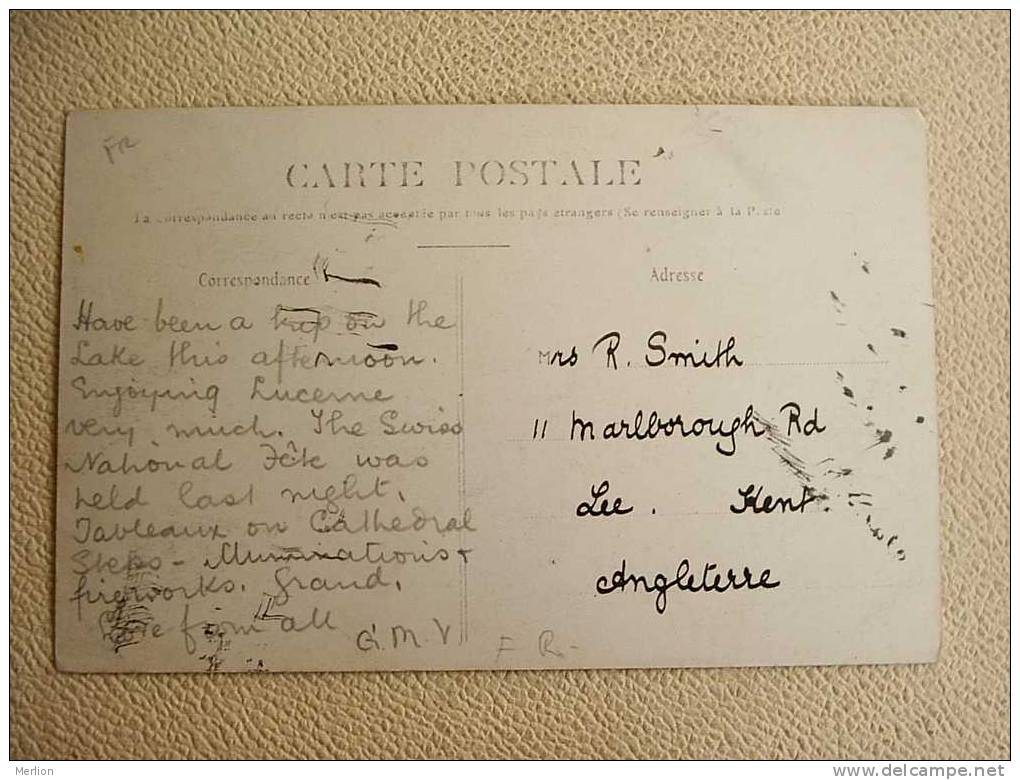 FR
CARTE POSTALE
La correspondance au recto n'est pas acceptée par tous les pays étrangers (Se renseigner à la Poste
Correspondance
Have been a trip on the
Lake this afternoon.
Enjoying Lucerne
very much. The Swiss
National Fête was
held last night.
Tableaux on Cathedral
Steps - Illuminations +
fireworks. Grand.
Love from all
G. M. V
F R-
Adresse
Mrs R. Smith
11 Marlborough Rd
Lee. Kent.
Angleterre
Merlion
www.delcampe.net